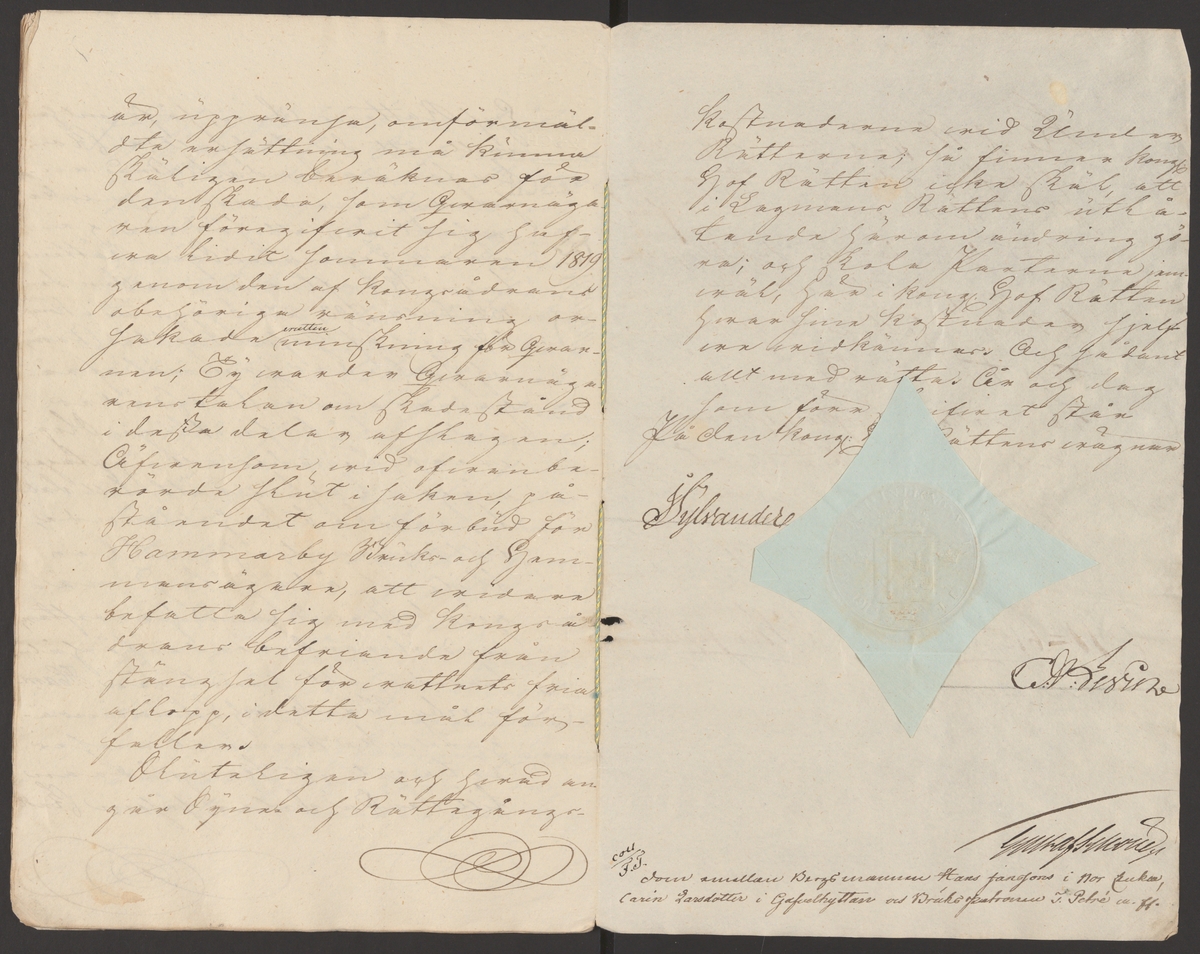 är, uppränsa, omförmäl-
dte ersättning må kunna
skäligen beräknas för
den skada, som Qvarnäga
ren föregifvit sig haf-
va lidit sommaren 1819
genom den af kongsådrans
obehöriga ränsning or-
sakade vatten minskning för Qvar-
nen; Ty warder Qvarnäga
rens talan om skadestånd
i dessa delar afslagen;
Äfvensom, wid ofvanbe-
rörde slut i saken, på-
ståendet om förbud för
Hammarby Bruks- och Hem-
mansägare, att vidare
befatta sig med Kongså
drans befriande från
stängsel för wattnets fria
aflopp, i detta mål för-
faller.
Sluteligen och hvad an
går Syne- och Rättegångs-
kostnaderne wid Under
Rätterne; så finner Kongl.
Hof Rätten icke skäl, att
i Lagmans Rättens utlå-
tande härom ändring gö-
ra; och skola Parterne jem-
wäl, här i Kongl. Hof Rätten
hvar sine kostnader sjelf
vre widkännas. Och sådant
allt med rätta. År och dag
som förr skrifvet står
På den Kongl. Rättens wägnar
Sylvander
Coll
Dom emellan Bergsmannen Hans Jansson i Nor
Carin Larsdotter i Gafvelhyttan och Bruks patronen T. Petré m. fl.